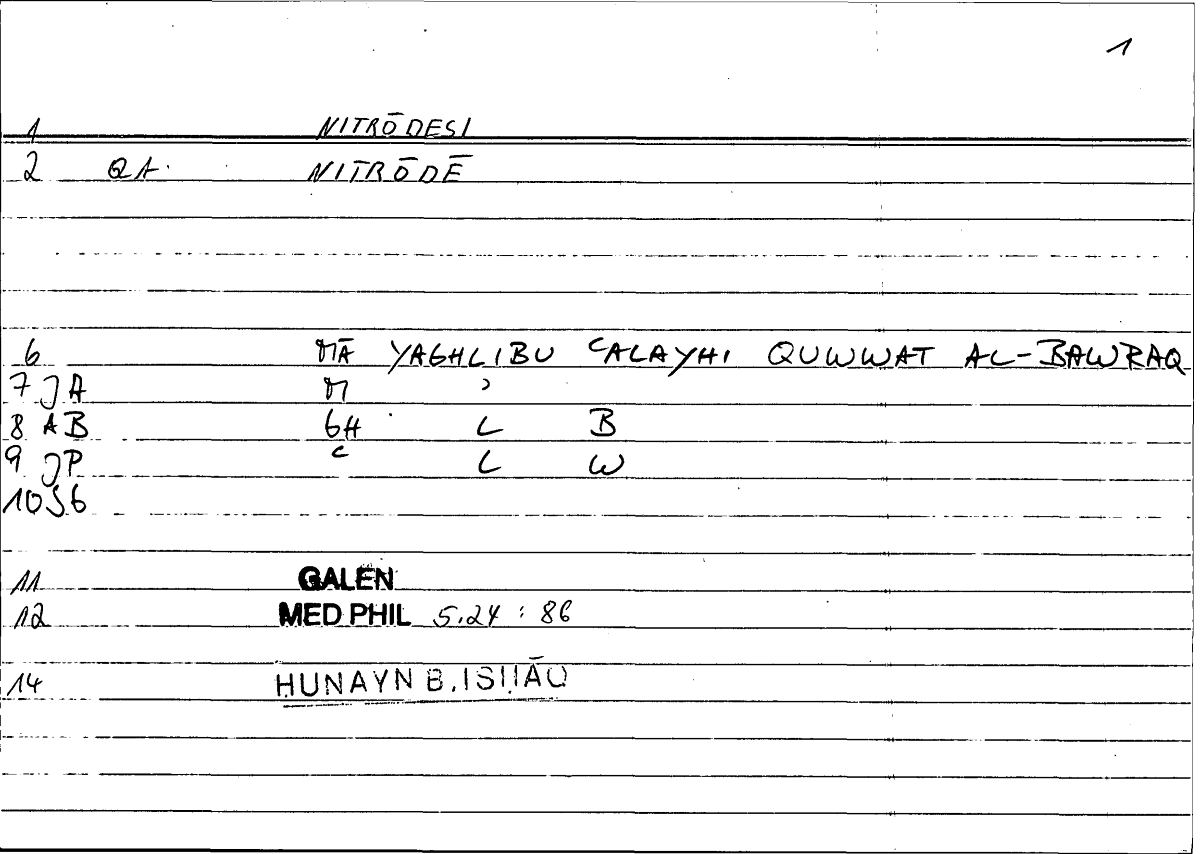 1
1 NITRŌDESI
2 QA. NITRŌDĒ
6 MĀ YAGHLIBU ʿALAYHI QUWWAT AL-BAWRAQ
7 JA M ʾ
8 AB GH L B
9 JP ʿ L W
10 SG
11 GALEN
12 MED PHIL 5.24 : 86
14 HUNAYN B. ISḤĀQ